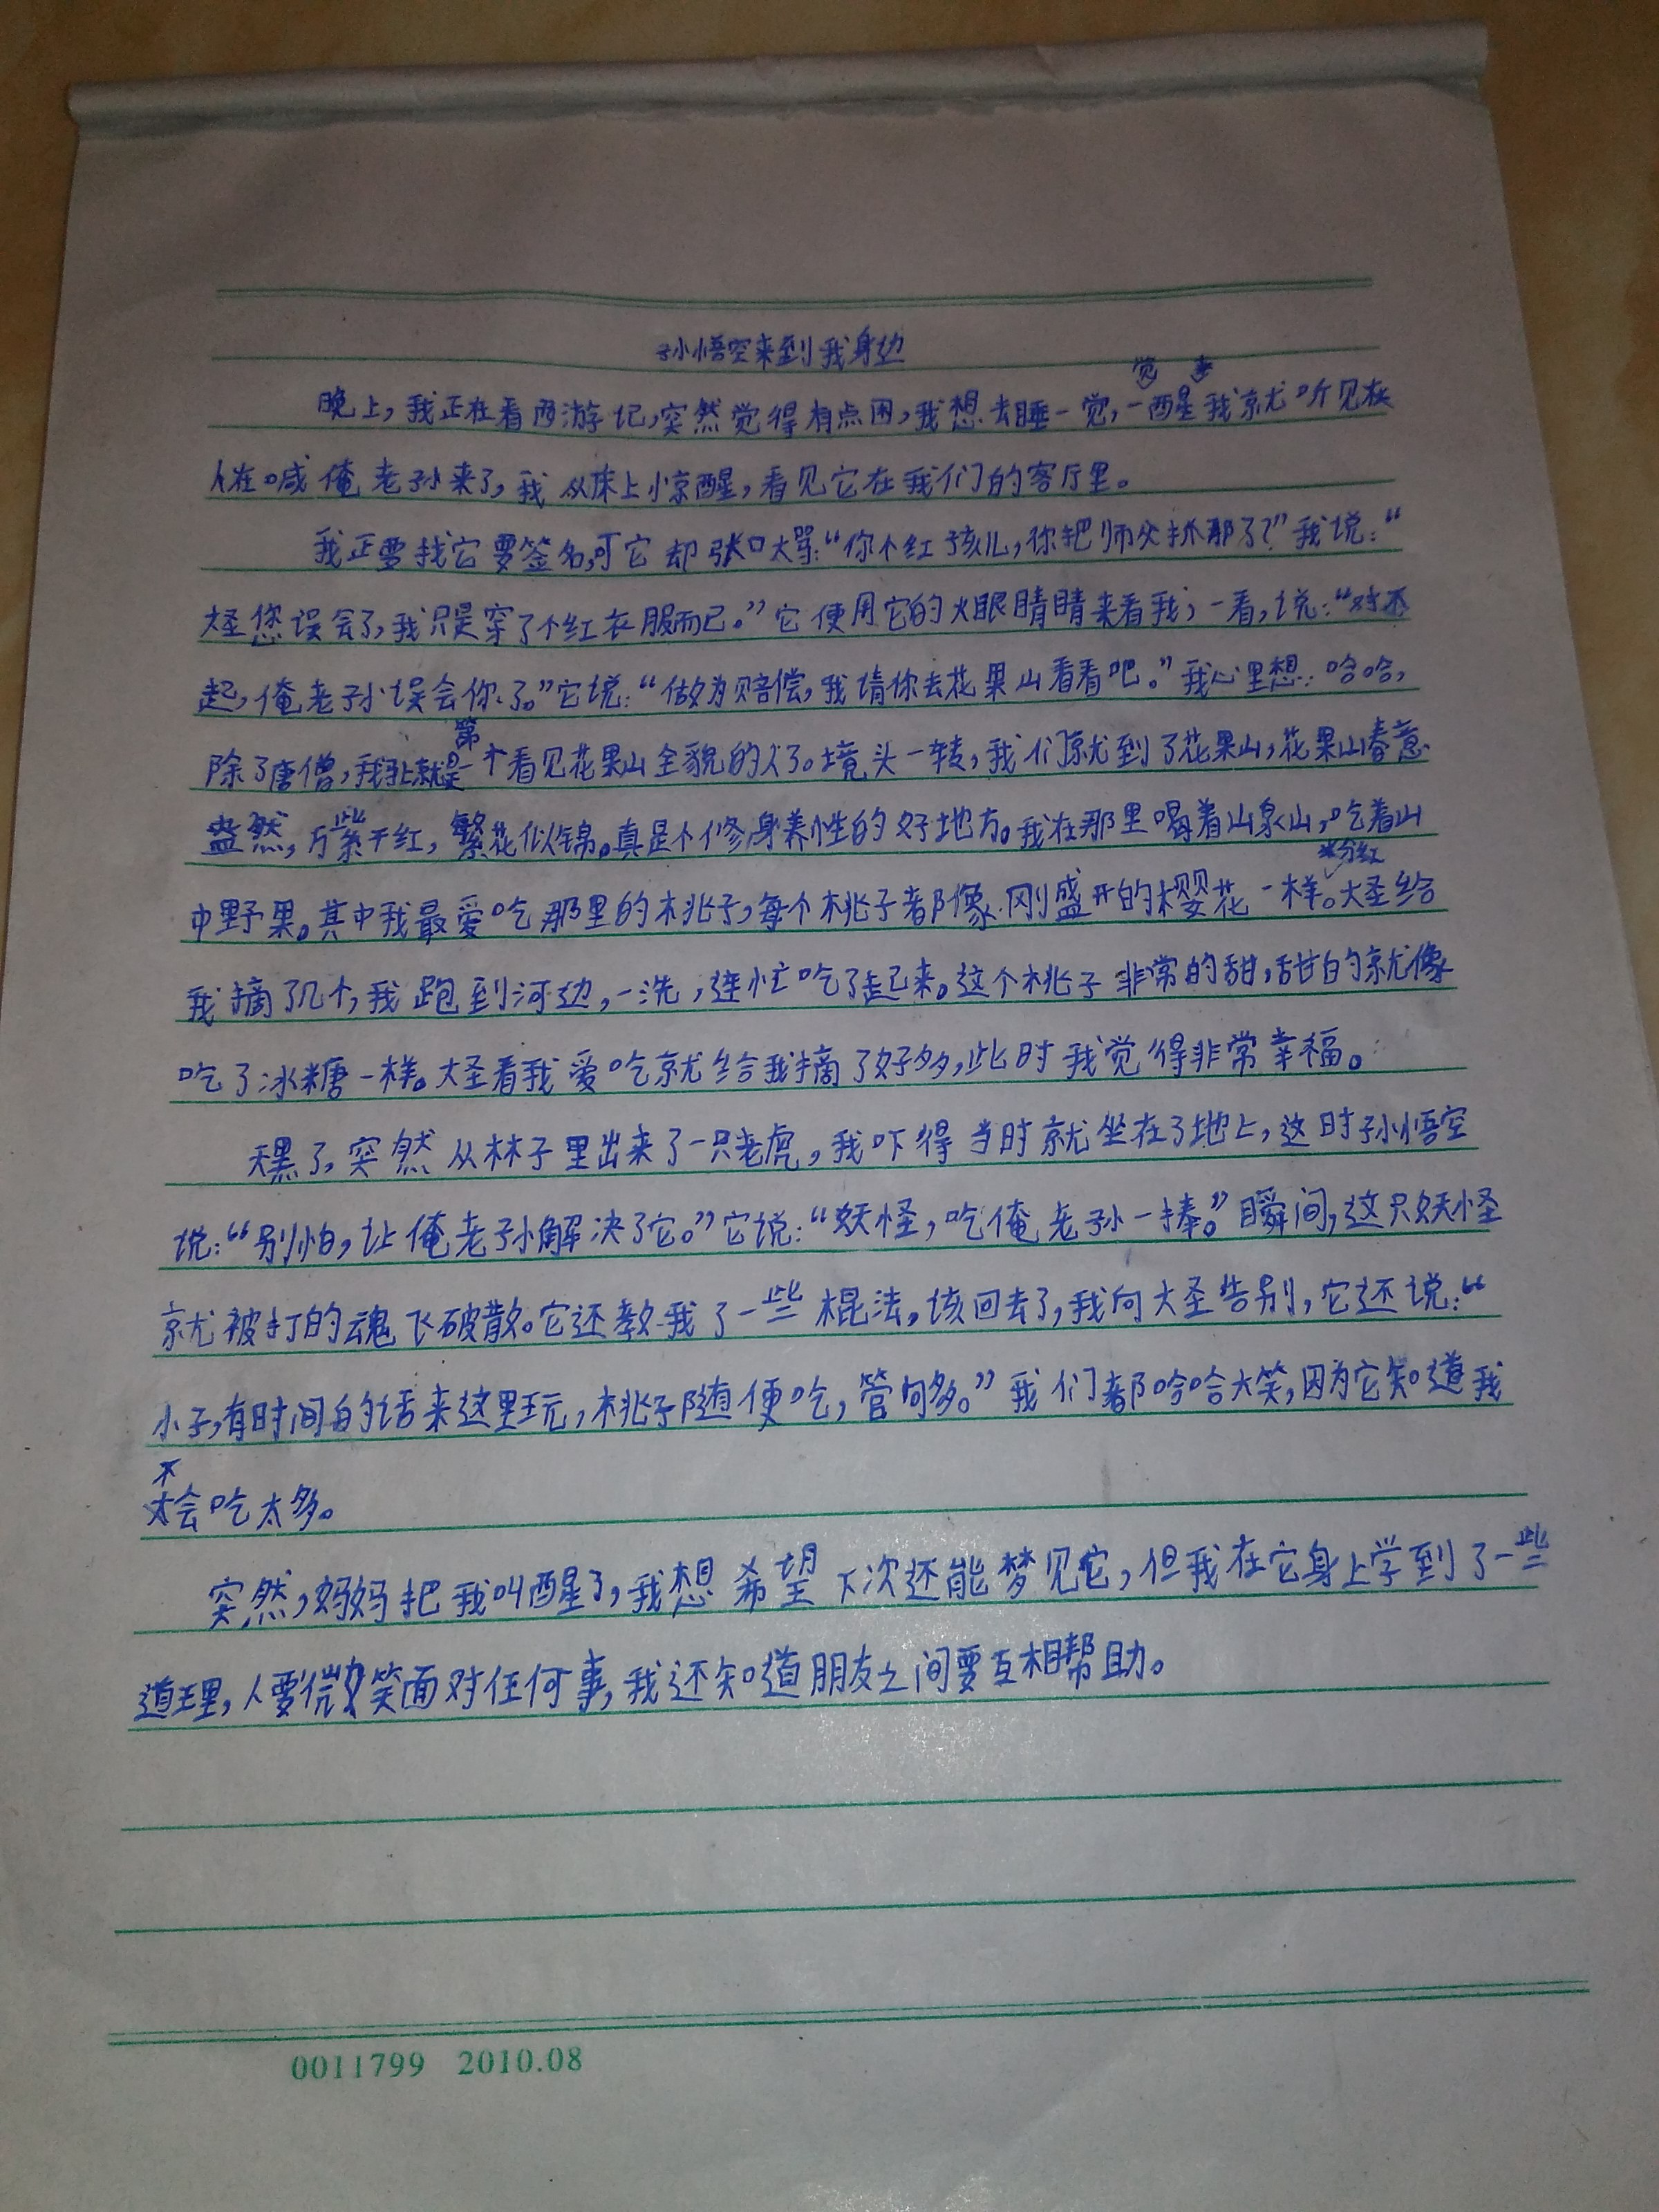 孙悟空来到我身边
晚上,我正在看西游记,突然觉得有点困,我想去睡一觉,一觉醒来我就听见有
人在喊俺老孙来了,我从床上惊醒,看见它在我们的客厅里。
我正要找它要签名,可它却张口大骂:“你个红孩儿,你把师父抓那了?”我说:“
大圣您误会了,我只是穿了个红衣服而已。”它使用它的火眼睛睛来看我,一看,说:“对不
起,俺老孙误会你了。”它说:“做为赔偿,我请你去花果山看看吧。”我心里想:哈哈,
除了唐僧,我马上就是第一个看见花果山全貌的人了。境头一转,我们就到了花果山,花果山春意
盎然,万紫千红,繁花似锦。真是个修身养性的好地方。我在那里喝着山泉山,吃着山
中野果。其中我最爱吃那里的桃子,每个桃子都像刚盛开的樱花一样粉红。大圣给
我摘了几个,我跑到河边,一洗,连忙吃了起来。这个桃子非常的甜,甜的就像
吃了冰糖一样。大圣看我爱吃就给我摘了好多,此时我觉得非常幸福。
天黑了,突然从林子里出来了一只老虎,我吓得当时就坐在了地上,这时孙悟空
说:“别怕,让俺老孙解决了它。”它说:“妖怪,吃俺老孙一捧。”瞬间,这只妖怪
就被打的魂飞破散。它还教我了一些棍法。该回去了,我向大圣告别,它还说:“
小子,有时间的话来这里玩,桃子随便吃,管够。”我们都哈哈大笑,因为它知道我
不会吃太多。
突然,妈妈把我叫醒了,我想希望下次还能梦见它,但我在它身上学到了一些
道理,人要微笑面对任何事,我还知道朋友之间要互相帮助。
0011799 2010.08